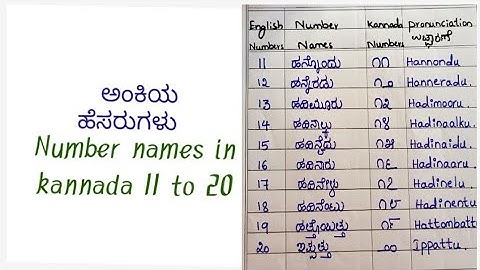 ಅಂಕಿಯ
ಹೆಸರುಗಳು
Number names in
kannada 11 to 20
English Numbers Number Names Kannada Numbers pronunciation ಉಚ್ಛಾರಣೆ
11 ಹನ್ನೊಂದು ೧೧ Hannondu
12 ಹನ್ನೆರಡು ೧೨ Hanneradu.
13 ಹದಿಮೂರು ೧೩ Hadimooru.
14 ಹದಿನಾಲ್ಕು ೧೪ Hadinaalku.
15 ಹದಿನೈದು ೧೫ Hadinaidu.
16 ಹದಿನಾರು ೧೬ Hadinaaru.
17 ಹದಿನೇಳು ೧೭ Hadinelu.
18 ಹದಿನೆಂಟು ೧೮ Hadinentu
19 ಹತ್ತೊಂಬತ್ತು ೧೯ Hattombatt
20 ಇಪ್ಪತ್ತು ೨೦ Ippattu.